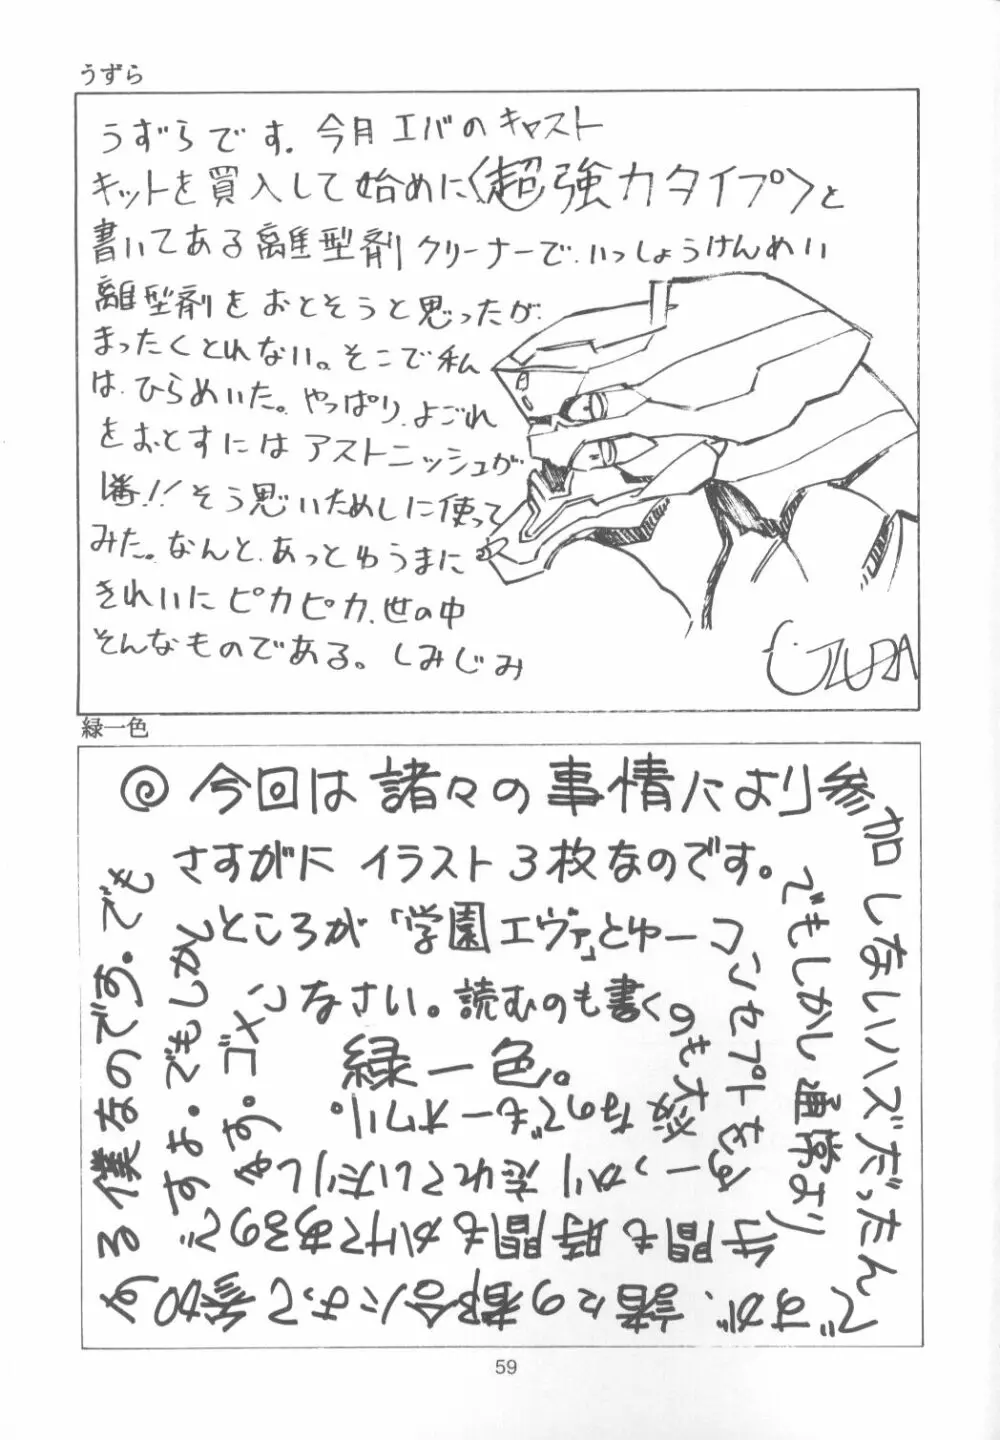 うずら
うずらです。今月エバのキャスト
キットを買入して始めに〈超強力タイプ〉と
書いてある離型剤クリーナーで、いっしょうけんめい
離型剤をおとそうと思ったが、
まったくとれない。そこで私
は、ひらめいた。やっぱり、よごれ
をおとすにはアストニッシュが
1番!!そう思いためしに使って
みた。なんと、あっとゆうまに
きれいにピカピカ、世の中
そんなものである。しみじみ
UZURA
緑一色
◎今回は諸々の事情により参加しないハズだったんで
すが、諸々の都合によって参加す
る僕なのです。でも
さすがにイラスト3枚なのです。
でもしかし通常より
手間も時間もかけてあるので
すよ。でもしかし
ところが「学園エヴァ」とゆーコンセプトをす
っかり忘れていたりし
ます。ゴメンなさい。読むのも書くのも大変なのでもーオワリ。
緑一色。
59